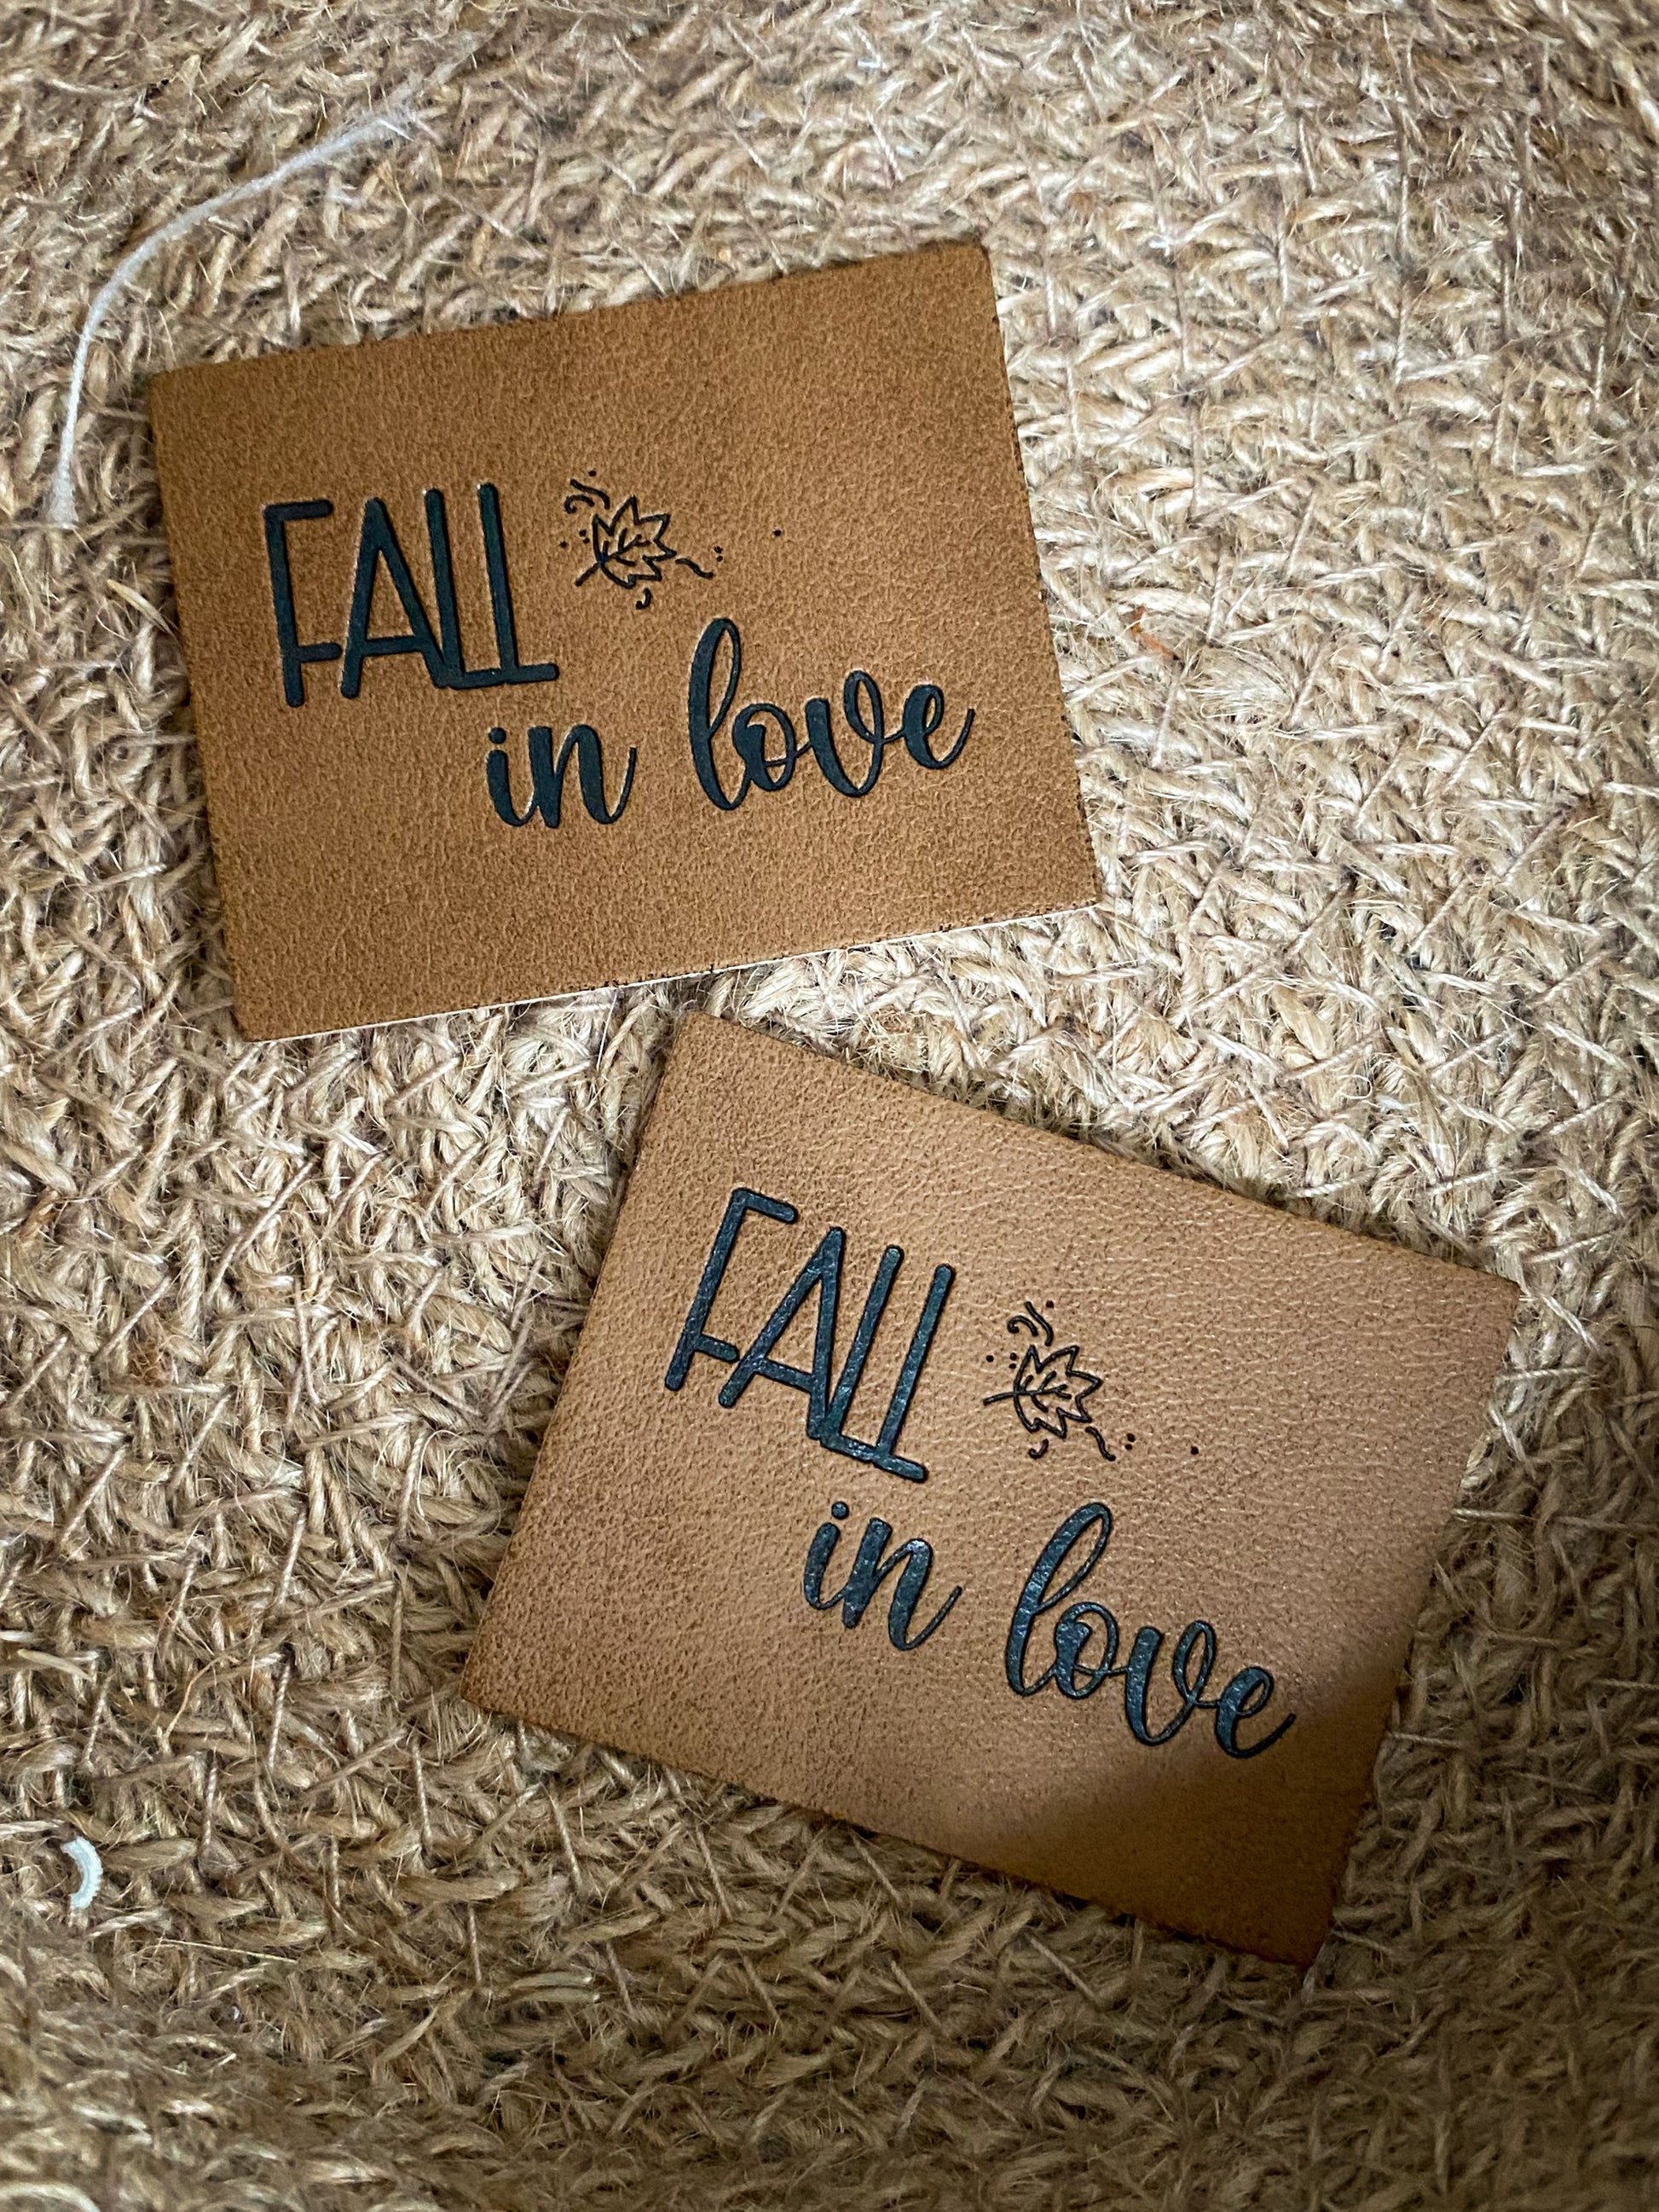 FALL
in love
FALL
in love